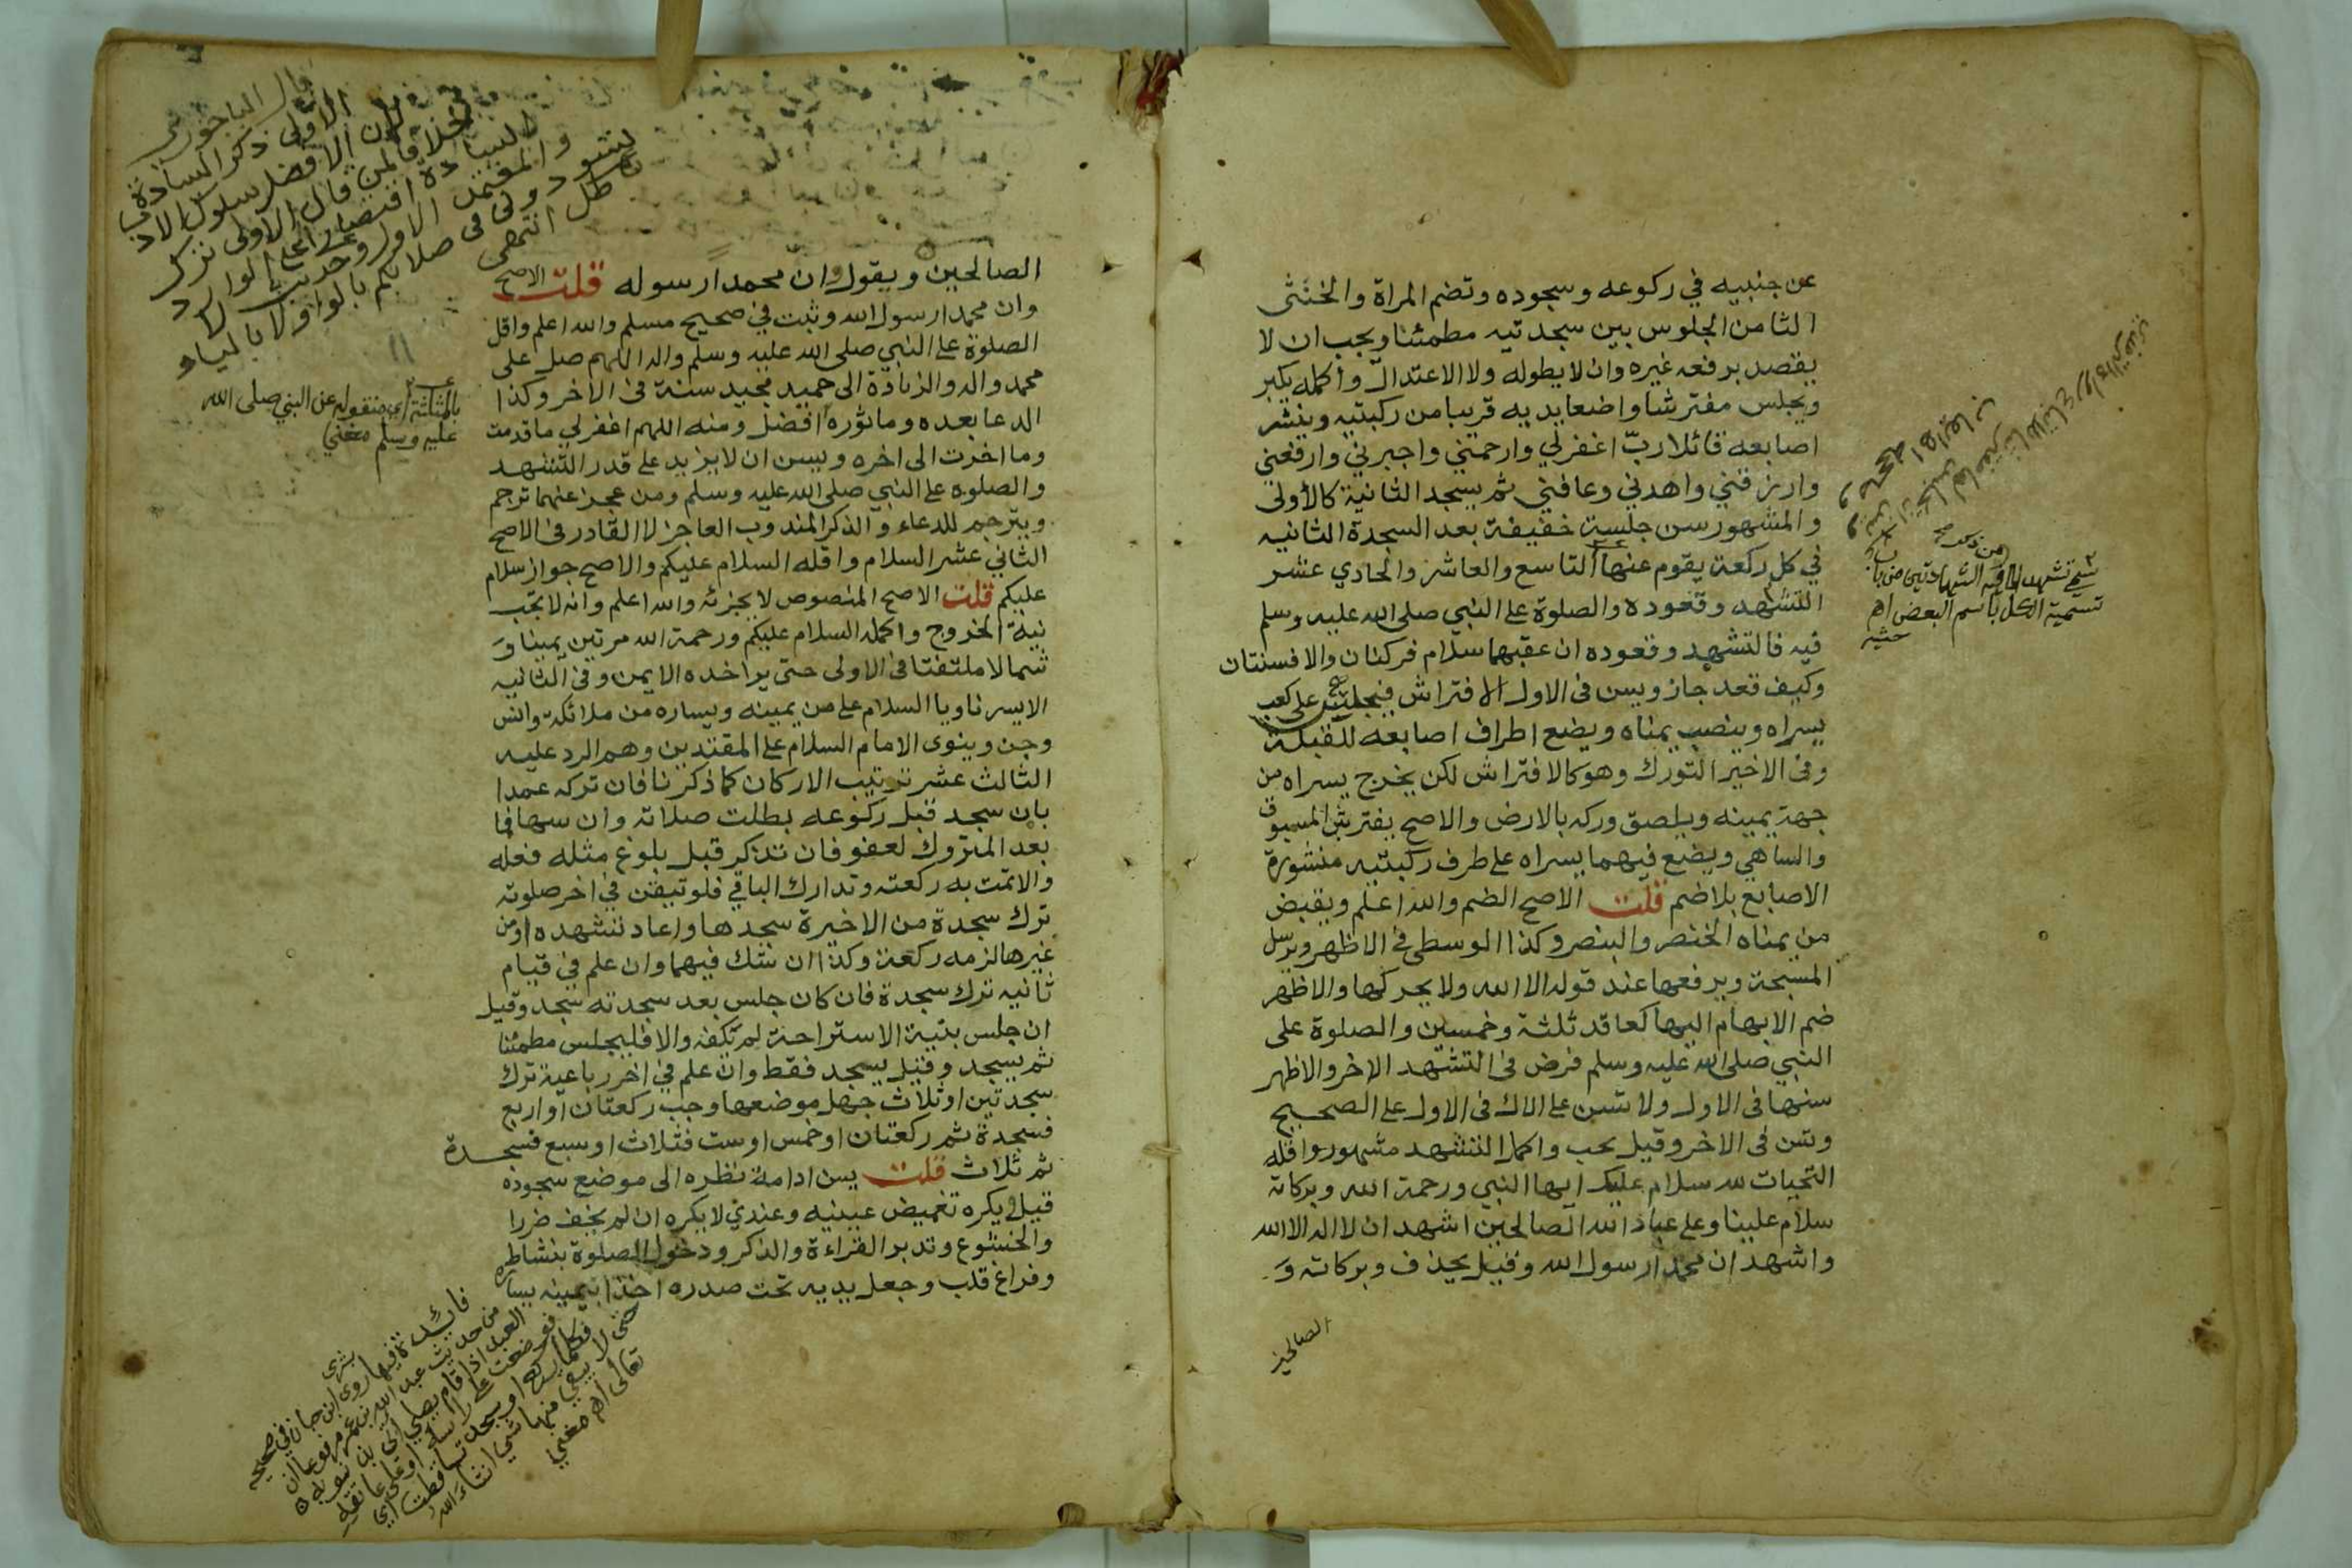 عن جنبيه في ركوعه وسجوده وتضم المراة والخنثى
الثامن الجلوس بين سجدتيه مطمئنا ويجب ان لا
يقصد برفعه غيره وان لا يطوله ولا الاعتدال وأكمله يكبر
ويجلس مفترشا واضعا يديه قريبا من ركبتيه وينشر
اصابعه قائلا ربّ اغفر لي وارحمني واجبرني وارفعني
وارزقني واهدني وعافني ثم يسجد الثانية كالأولى
والمشهور سن جلسة خفيفة بعد السجدة الثانيه
في كل ركعة يقوم عنها التاسع والعاشر والحادي عشر
التشهد وقعوده والصلوة على النبي صلى الله عليه وسلم
فيه فالتشهد وقعوده ان عقبهما سلام فركنان والا فسنتان
وكيف قعد جاز ويسن في الاول الافتراش فيجلس على كعب
يسراه وينصب يمناه ويضع اطراف اصابعه للقبلة
وفي الاخير التورك وهو كالافتراش لكن يخرج يسراه من
جهة يمينه ويلصق وركه بالارض والاصح يفترش المسبوق
والساهي ويضع فيهما يسراه على طرف ركبتيه منشورة
الاصابع بلا ضم قلت الاصح الضم والله اعلم ويقبض
من يمناه الخنصر والبنصر وكذا الوسطى في الاظهر ويرسل
المسبحة ويرفعها عند قوله الا الله ولا يحركها والاظهر
ضم الابهام اليها كعاقد ثلثة وخمسين والصلوة على
النبي صلى الله عليه وسلم فرض في التشهد الاخر والاظهر
سنها في الاول ولا تسن على الال في الاول على الصحيح
وتسن في الاخر وقيل يجب واكمل التشهد مشهور واقله
التحيات لله سلام عليك ايها النبي ورحمة الله وبركاته
سلام علينا وعلى عباد الله الصالحين اشهد ان لا اله الا الله
واشهد ان محمدا رسول الله وقيل يحذف وبركاته و
الصالحين
سمي تشهدا لما فيه الشهادتين من باب
تسمية الكل باسم البعض اه
الصالحين ويقول وانّ محمدا رسوله قلت الاصح
وان محمدا رسول الله وثبت في صحيح مسلم والله اعلم واقل
الصلوة على النبي صلى الله عليه وسلم واله اللهم صل على
محمد واله والزيادة الى حميد مجيد سنة في الاخر وكذا
الدعا بعده وماثوره افضل ومنه اللهم اغفر لي ما قدمت
وما اخرت الى اخره ويسن ان لا يزيد على قدر التشهد
والصلوه على النبي صلى الله عليه وسلم ومن عجز عنهما ترجم
ويترجم للدعاء والذكر المندوب العاجز لا القادر في الاصح
الثاني عشر السلام واقله السلام عليكم والاصح جواز سلام
عليكم قلت الاصح المنصوص لا يجزئه والله اعلم وانه لا تجب
نية الخروج واكمله السلام عليكم ورحمة الله مرتين يمينا وَ
شمالا ملتفتا في الاولى حتى يرا خده الايمن وفي الثانيه
الايسر ناويا السلام على من يمينه ويساره من ملائكة وانس
وجن وينوى الامام السلام على المقتدين وهم الرد عليه
الثالث عشر ترتيب الاركان كما ذكرنا فان تركه عمدا
بان سجد قبل ركوعه بطلت صلاته وان سها فما
بعد المتروك لغو فان تذكر قبل بلوغ مثله فعله
والا تمت به ركعته وتدارك الباقي فلو تيقن في اخر صلوته
ترك سجدة من الاخيرة سجدها واعاد تشهده او من
غيرها لزمه ركعة وكذا ان شك فيهما وان علم في قيام
ثانيه ترك سجدة فان كان جلس بعد سجدته سجد وقيل
ان جلس بنية الاستراحة لم تكفه والا فليجلس مطمئنا
ثم يسجد وقيل يسجد فقط وان علم في اخر رباعية ترك
سجدتين او ثلاث جهل موضعها وجب ركعتان او اربع
فسجدة ثم ركعتان او خمس او ست فثلاث او سبع فسجدة
ثم ثلاث قلت يسن ادامة نظره الى موضع سجوده
قيل ويكره تغميض عينيه وعندي لا يكره ان لم يخف ضررا
والخشوع وتدبر القراءة والذكر ودخول الصلوة بنشاط
وفراغ قلب وجعل يديه تحت صدره اخذا بيمينه يساره
بالمثلثة اي منقوله عن النبي صلى الله
عليه وسلم مغني
قال الباجوري
الاولى ذكر السيادة
لان الافضل سلوك الادب
خلافا لمن قال الاولى ترك
السيادة اقتصارا على الوارد
والمعتمد الاول وحديث لا
تسودوني في صلاتكم بالواو لا بالياء
باطل انتهى
فائدة فيها بشرى
روى ابن حبان في صحيحه
من حديث عبد الله بن عمر مرفوعا ان
العبد اذا قام يصلي اتي بذنوبه
فوضعت على راسه او على عاتقه
فكلما ركع او سجد تساقطت اي
حتى لا يبقى منها شي انشاء الله
تعالى اه مغني